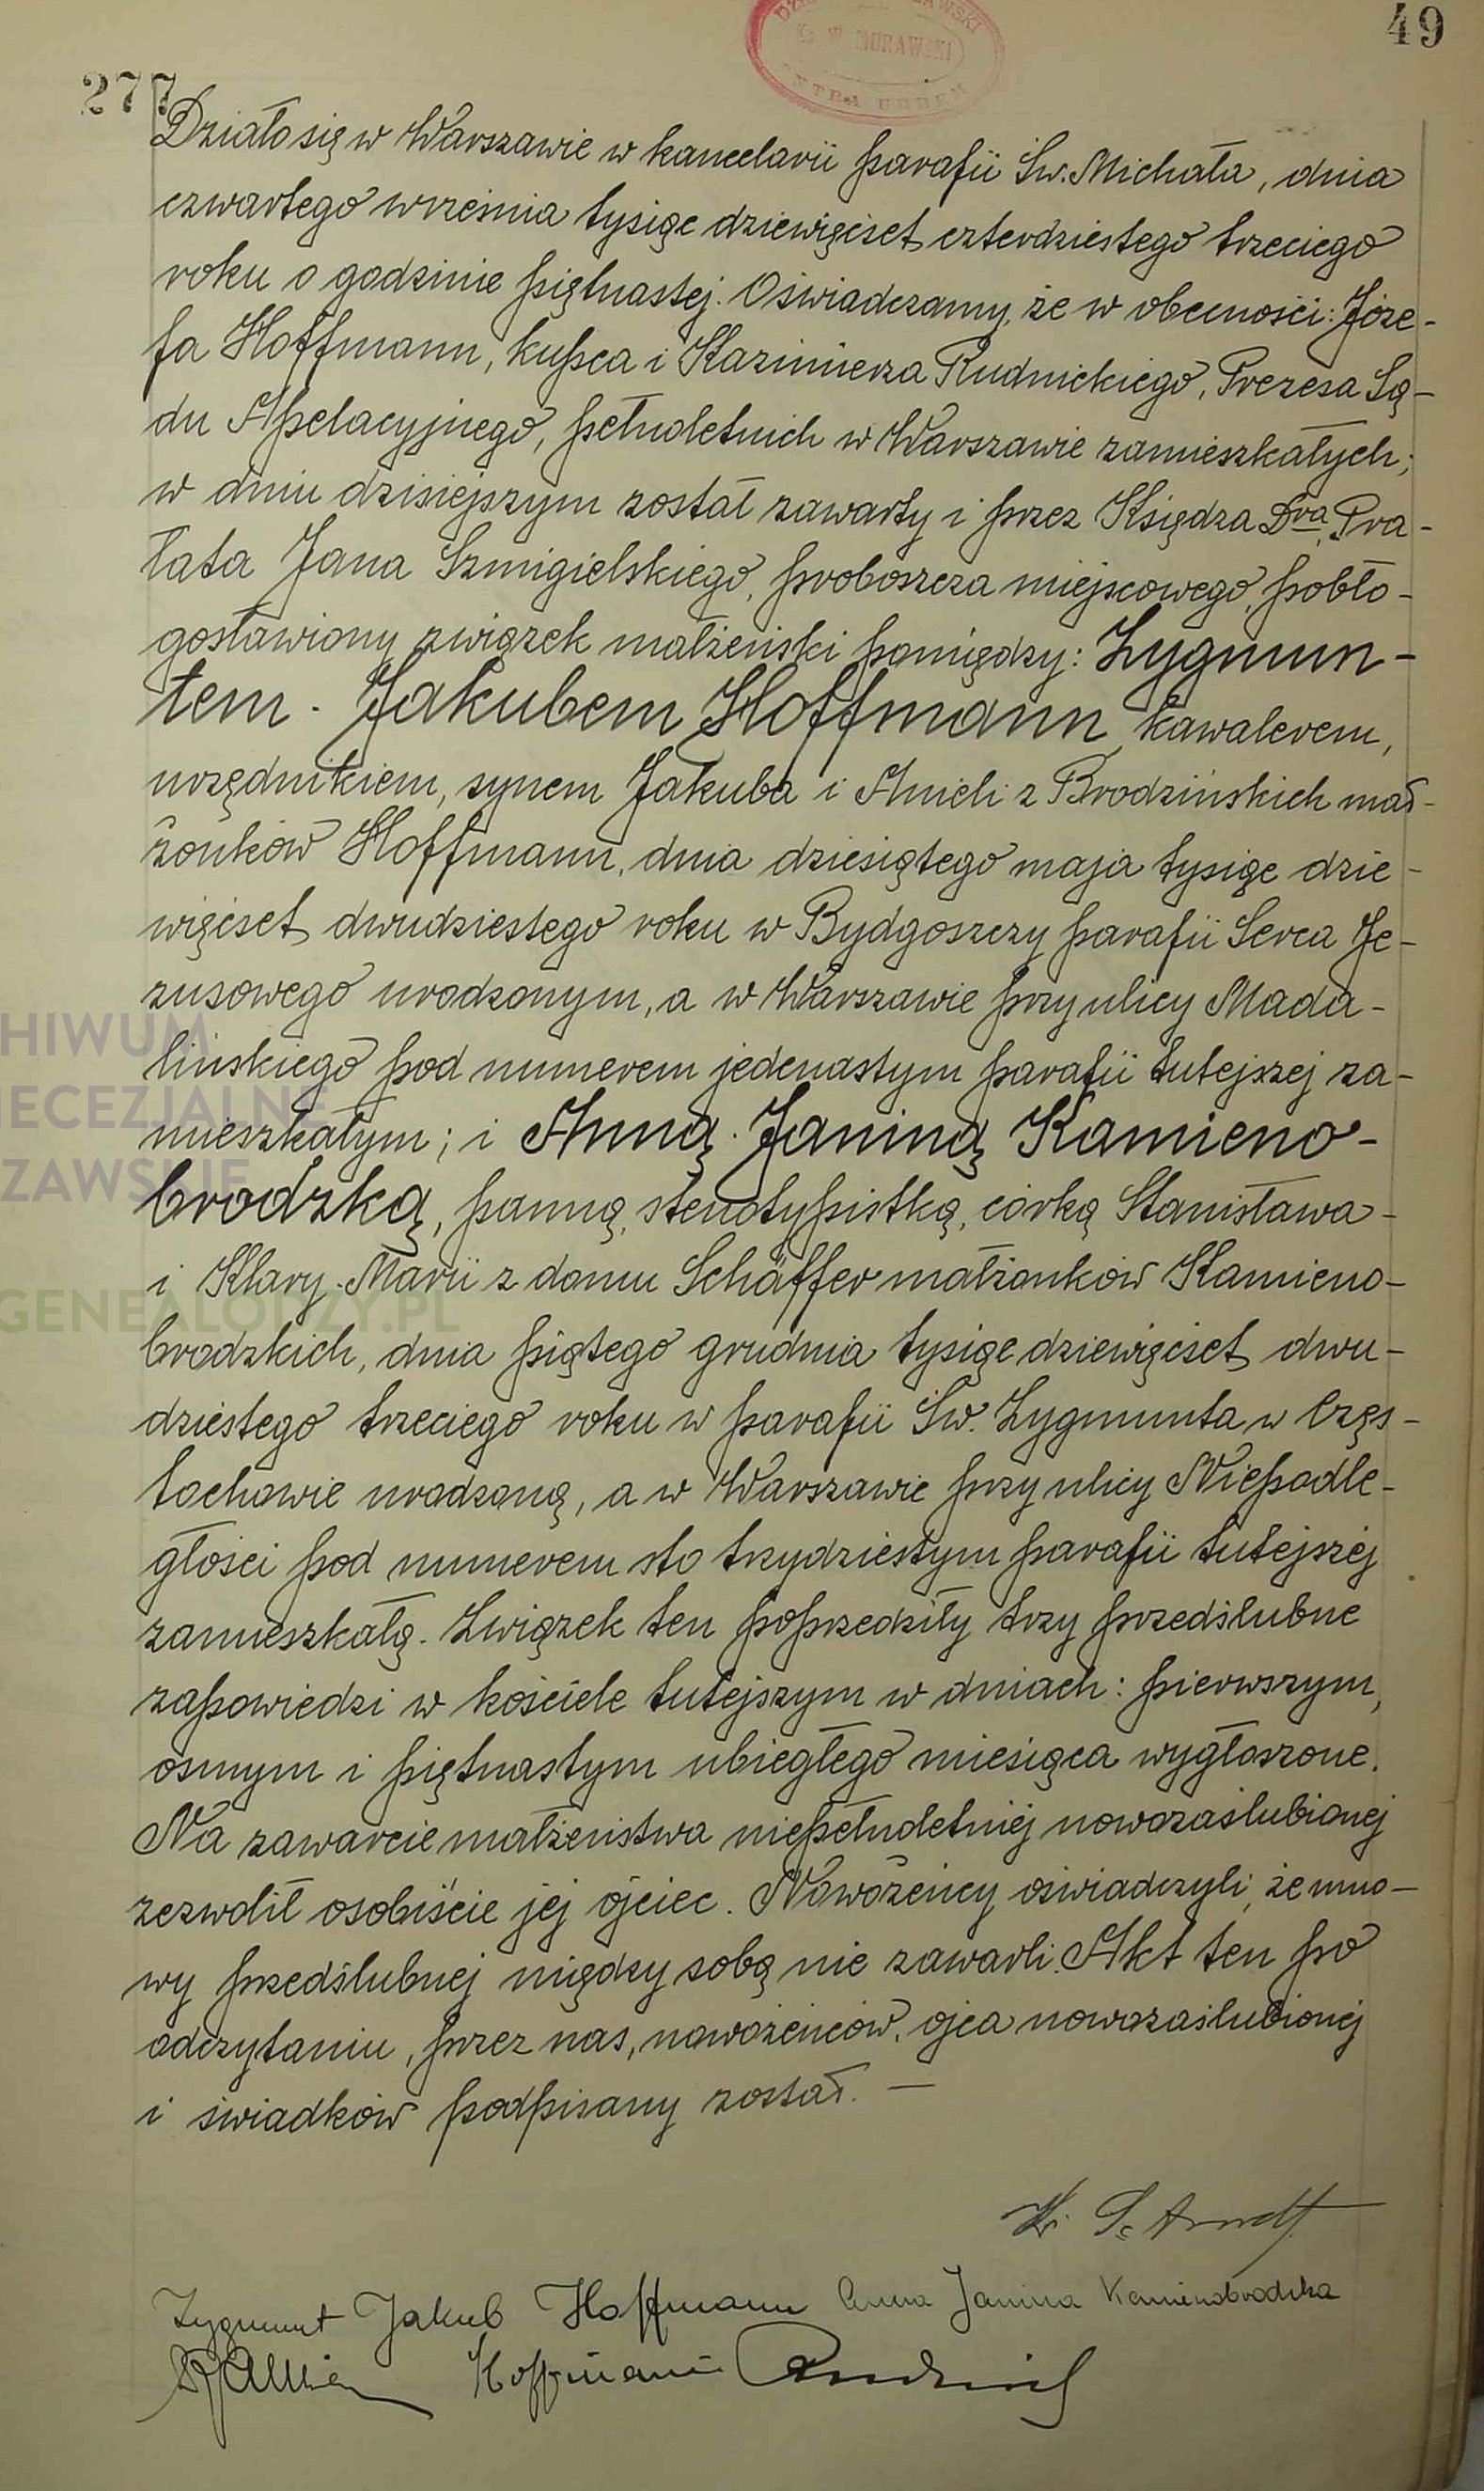 49
W. MURAWSKI
277
Działo się w Warszawie w kancelarii parafii Św. Michała, dnia
czwartego września tysiąc dziewięćset czterdziestego trzeciego
roku o godzinie piętnastej. Oświadczamy, że w obecności: Józe-
fa Hoffmann, kupca i Kazimierza Rudnickiego, Prezesa Są-
du Apelacyjnego, pełnoletnich w Warszawie zamieszkałych;
w dniu dzisiejszym został zawarty i przez Księdza Dra, Pra-
łata Jana Szmigielskiego, proboszcza miejscowego, pobło-
gosławiony związek małżeński pomiędzy: Zygmun-
tem - Jakubem Hoffmann, kawalerem,
urzędnikiem, synem Jakuba i Anieli z Brodzińskich mał-
żonków Hoffmann, dnia dziesiątego maja tysiąc dzie-
więćset dwudziestego roku w Bydgoszczy parafii Serca Je-
zusowego urodzonym, a w Warszawie przy ulicy Mada-
lińskiego pod numerem jedenastym parafii tutejszej za-
mieszkałym; i Anną - Janiną Kamieno-
brodzką, panną, stenotypistką, córką Stanisława-
i Klary - Marii z domu Schäffer małżonków Kamieno-
brodzkich, dnia piątego grudnia tysiąc dziewięćset dwu-
dziestego trzeciego roku w parafii Św. Zygmunta w Częs-
tochowie urodzoną, a w Warszawie przy ulicy Niepodle-
głości pod numerem sto trzydziestym parafii tutejszej
zamieszkałą. Związek ten poprzedziły trzy przedślubne
zapowiedzi w kościele tutejszym w dniach: pierwszym,
ósmym i piętnastym ubiegłego miesiąca wygłoszone.
Na zawarcie małżeństwa niepełnoletniej nowozaślubionej
zezwolił osobiście jej ojciec. Nowożeńcy oświadczyli, że umo-
wy przedślubnej między sobą nie zawarli. Akt ten po
odczytaniu, przez nas, nowożeńców, ojca nowozaślubionej
i świadków podpisany został. —
Zygmunt Jakub Hoffmann Anna Janina Kamienobrodzka
Hoffmann
HIWUM
IECEZJALNE
ZAWSKIE
GENEALODZY.PL